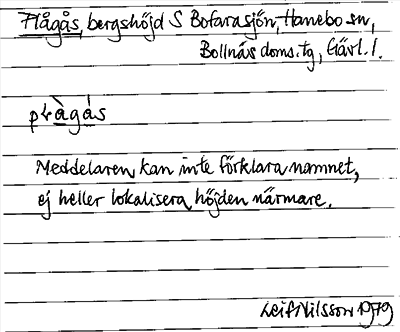 Flågås, bergshöjd S Bofarasjön, Hanebo sn,
Bollnäs doms.tg, Gävl.l.
Meddelaren kan inte förklara namnet,
ej heller lokalisera höjden närmare.
Leif Nilsson 1979